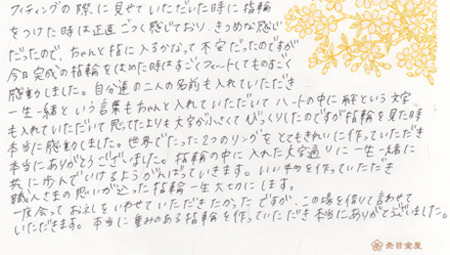 フィティングの際に見せていただいた時に指輪
をつけた時は正直ごつく感じており、きつめな感じ
だったので、ちゃんと指に入るかなって不安だったのですが
今日完成の指輪をはめた時はすごくフィットしてものすごく
感動しました。自分達の二人の名前も入れていただき
一生一緒という言葉もちゃんと入れていただいてハートの中に絆という文字
も入れていただいて思ってたよりも文字が小さくてびっくりしたのですが指輪を見た時
本当に感動しました。世界でたった2つのリングをとてもきれいに作っていただき
本当にありがとうございました。指輪の中に入れた文字通りに一生一緒に
共に歩んでいけるようがんばっていきます。いい物を作っていただき
職人さまの思いが込った指輪一生大切にします。
一度会ってお礼をいわせていただきたかったですが、この場を借りて言わせて
いただきます。本当に重みのある指輪を作っていただき本当にありがとうございました。
杢目金屋